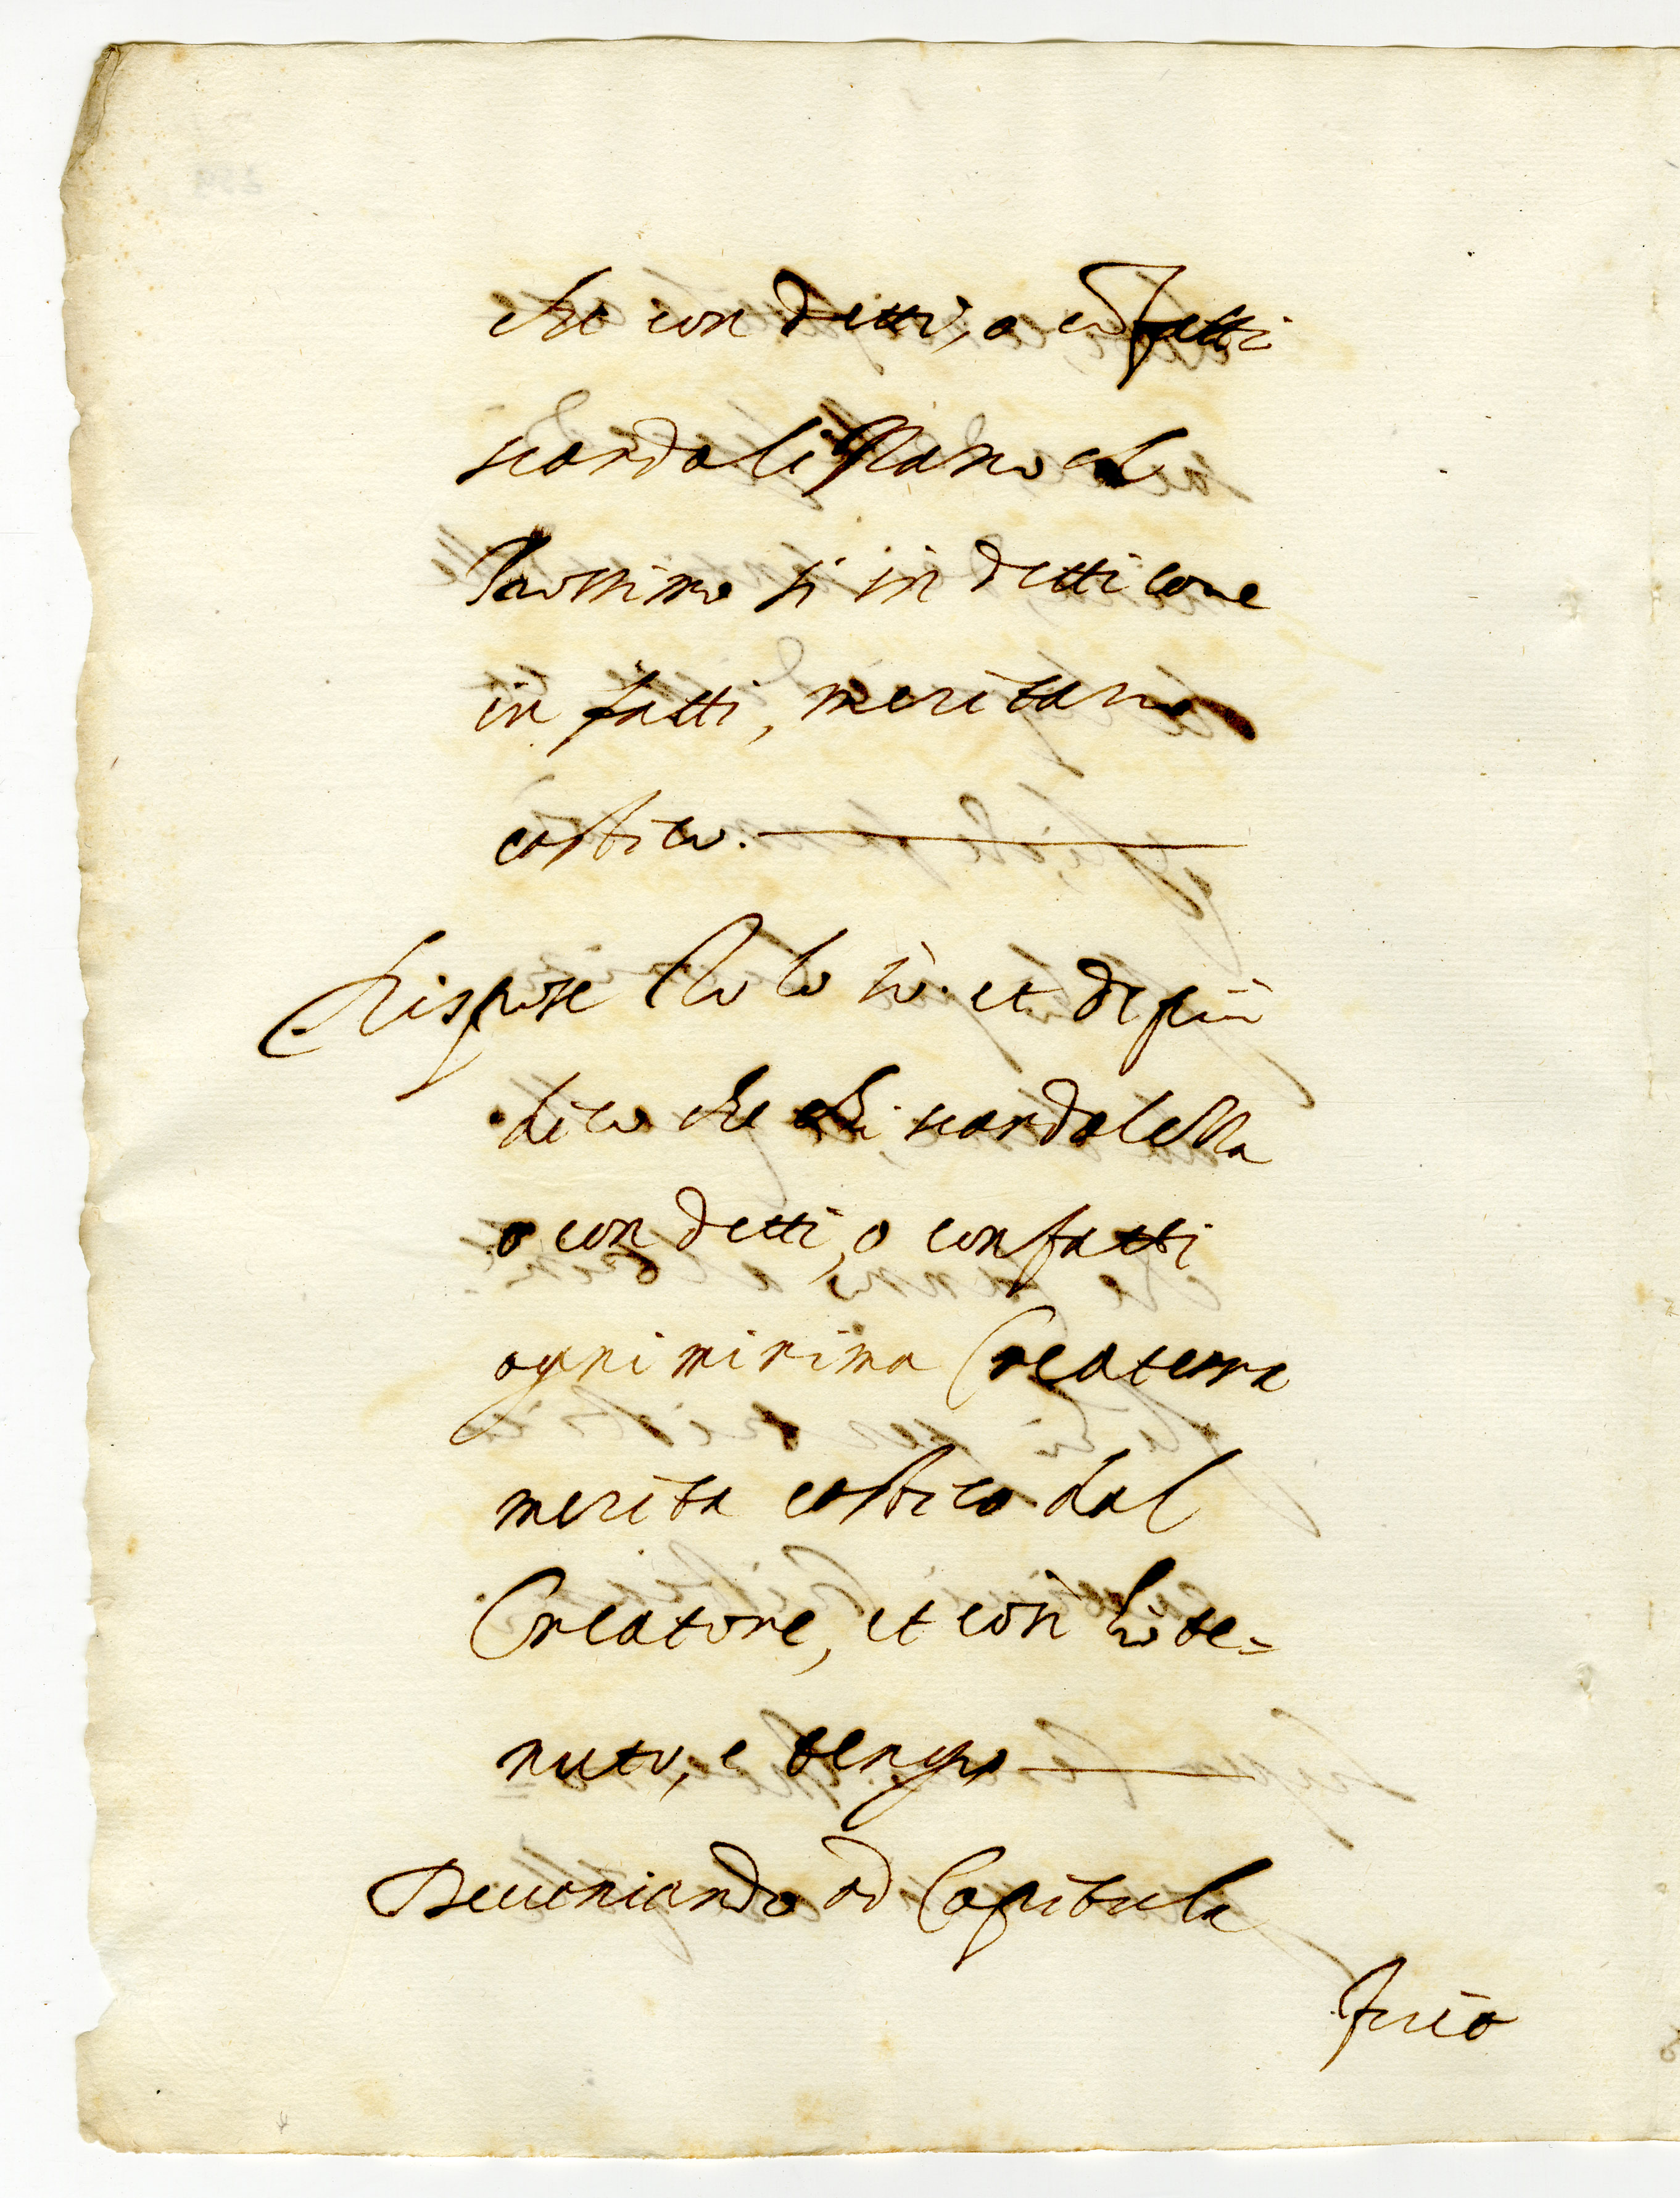 che con detti, o cõ fatti
scandalizzano el
Prossimo si in detti come
in fatti, meritano
castico.
Rispose Io lo sò. et di più
dico che chi scandalezza
o con detti, o con fatti
ogni minima Creatura
merita castico dal
Creatore, et così hò te=
nuto, e tengo
Deveniando ad Capitula